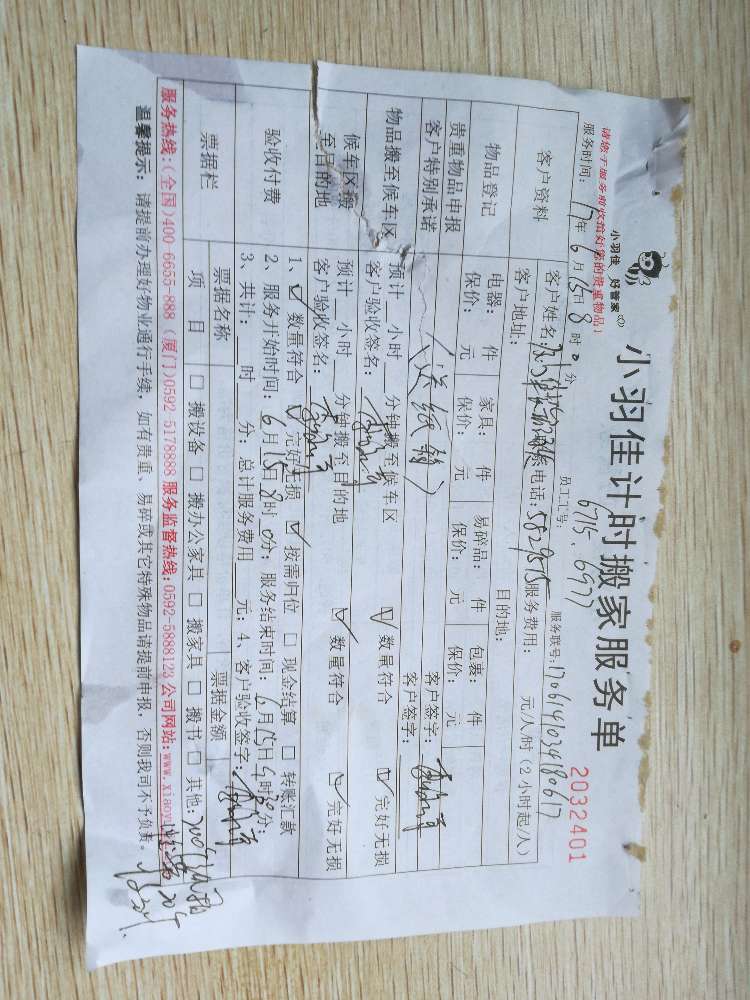 小羽佳 好管家
小羽佳计时搬家服务单
2032401
请您于服务前收拾好您的贵重物品)
员工工号: 6715、6977
服务联号:170614103480617
服务时间: 17年 6月 15日 8时 0分
客户资料
客户姓名:
联系电话:5829575
服务费用: 元/人/时(2小时起/人)
客户地址:
目的地:
物品登记
电器: 件 家具: 件 易碎品: 件 包裹: 件
保价: 元 保价: 元 保价: 元 保价: 元
贵重物品申报
客户签字:
客户特别承诺
(送纸箱)
客户签字:
物品搬至候车区
预计 小时 分钟搬至候车区
客户验收签名:
☑ 数量符合 ☑ 完好无损
候车区搬
至目的地
预计 小时 分钟搬至目的地
客户验收签名:
☑ 数量符合 ☑ 完好无损
验收付费
1、☑ 数量符合 ☑ 完好无损 ☑ 按需归位 □ 现金结算 □ 转账汇款
2、服务开始时间:6月15日8时0分; 服务结束时间:6月15日 时30分;
3、共计: 时 分; 总计服务费用 元; 4、客户验收签字:
票据栏
票据名称
票据金额
项 目
□ 搬设备 □ 搬办公家具 □ 搬家具 □ 搬书 □ 其他:
服务热线:(全国)400-6655-888 (厦门)0592-5178888 服务监督热线:0592-5888123 公司网站:www.xiaoyu
温馨提示: 请提前办理好物业通行手续, 如有贵重、易碎或其它特殊物品请提前申报, 否则我司不予负责。